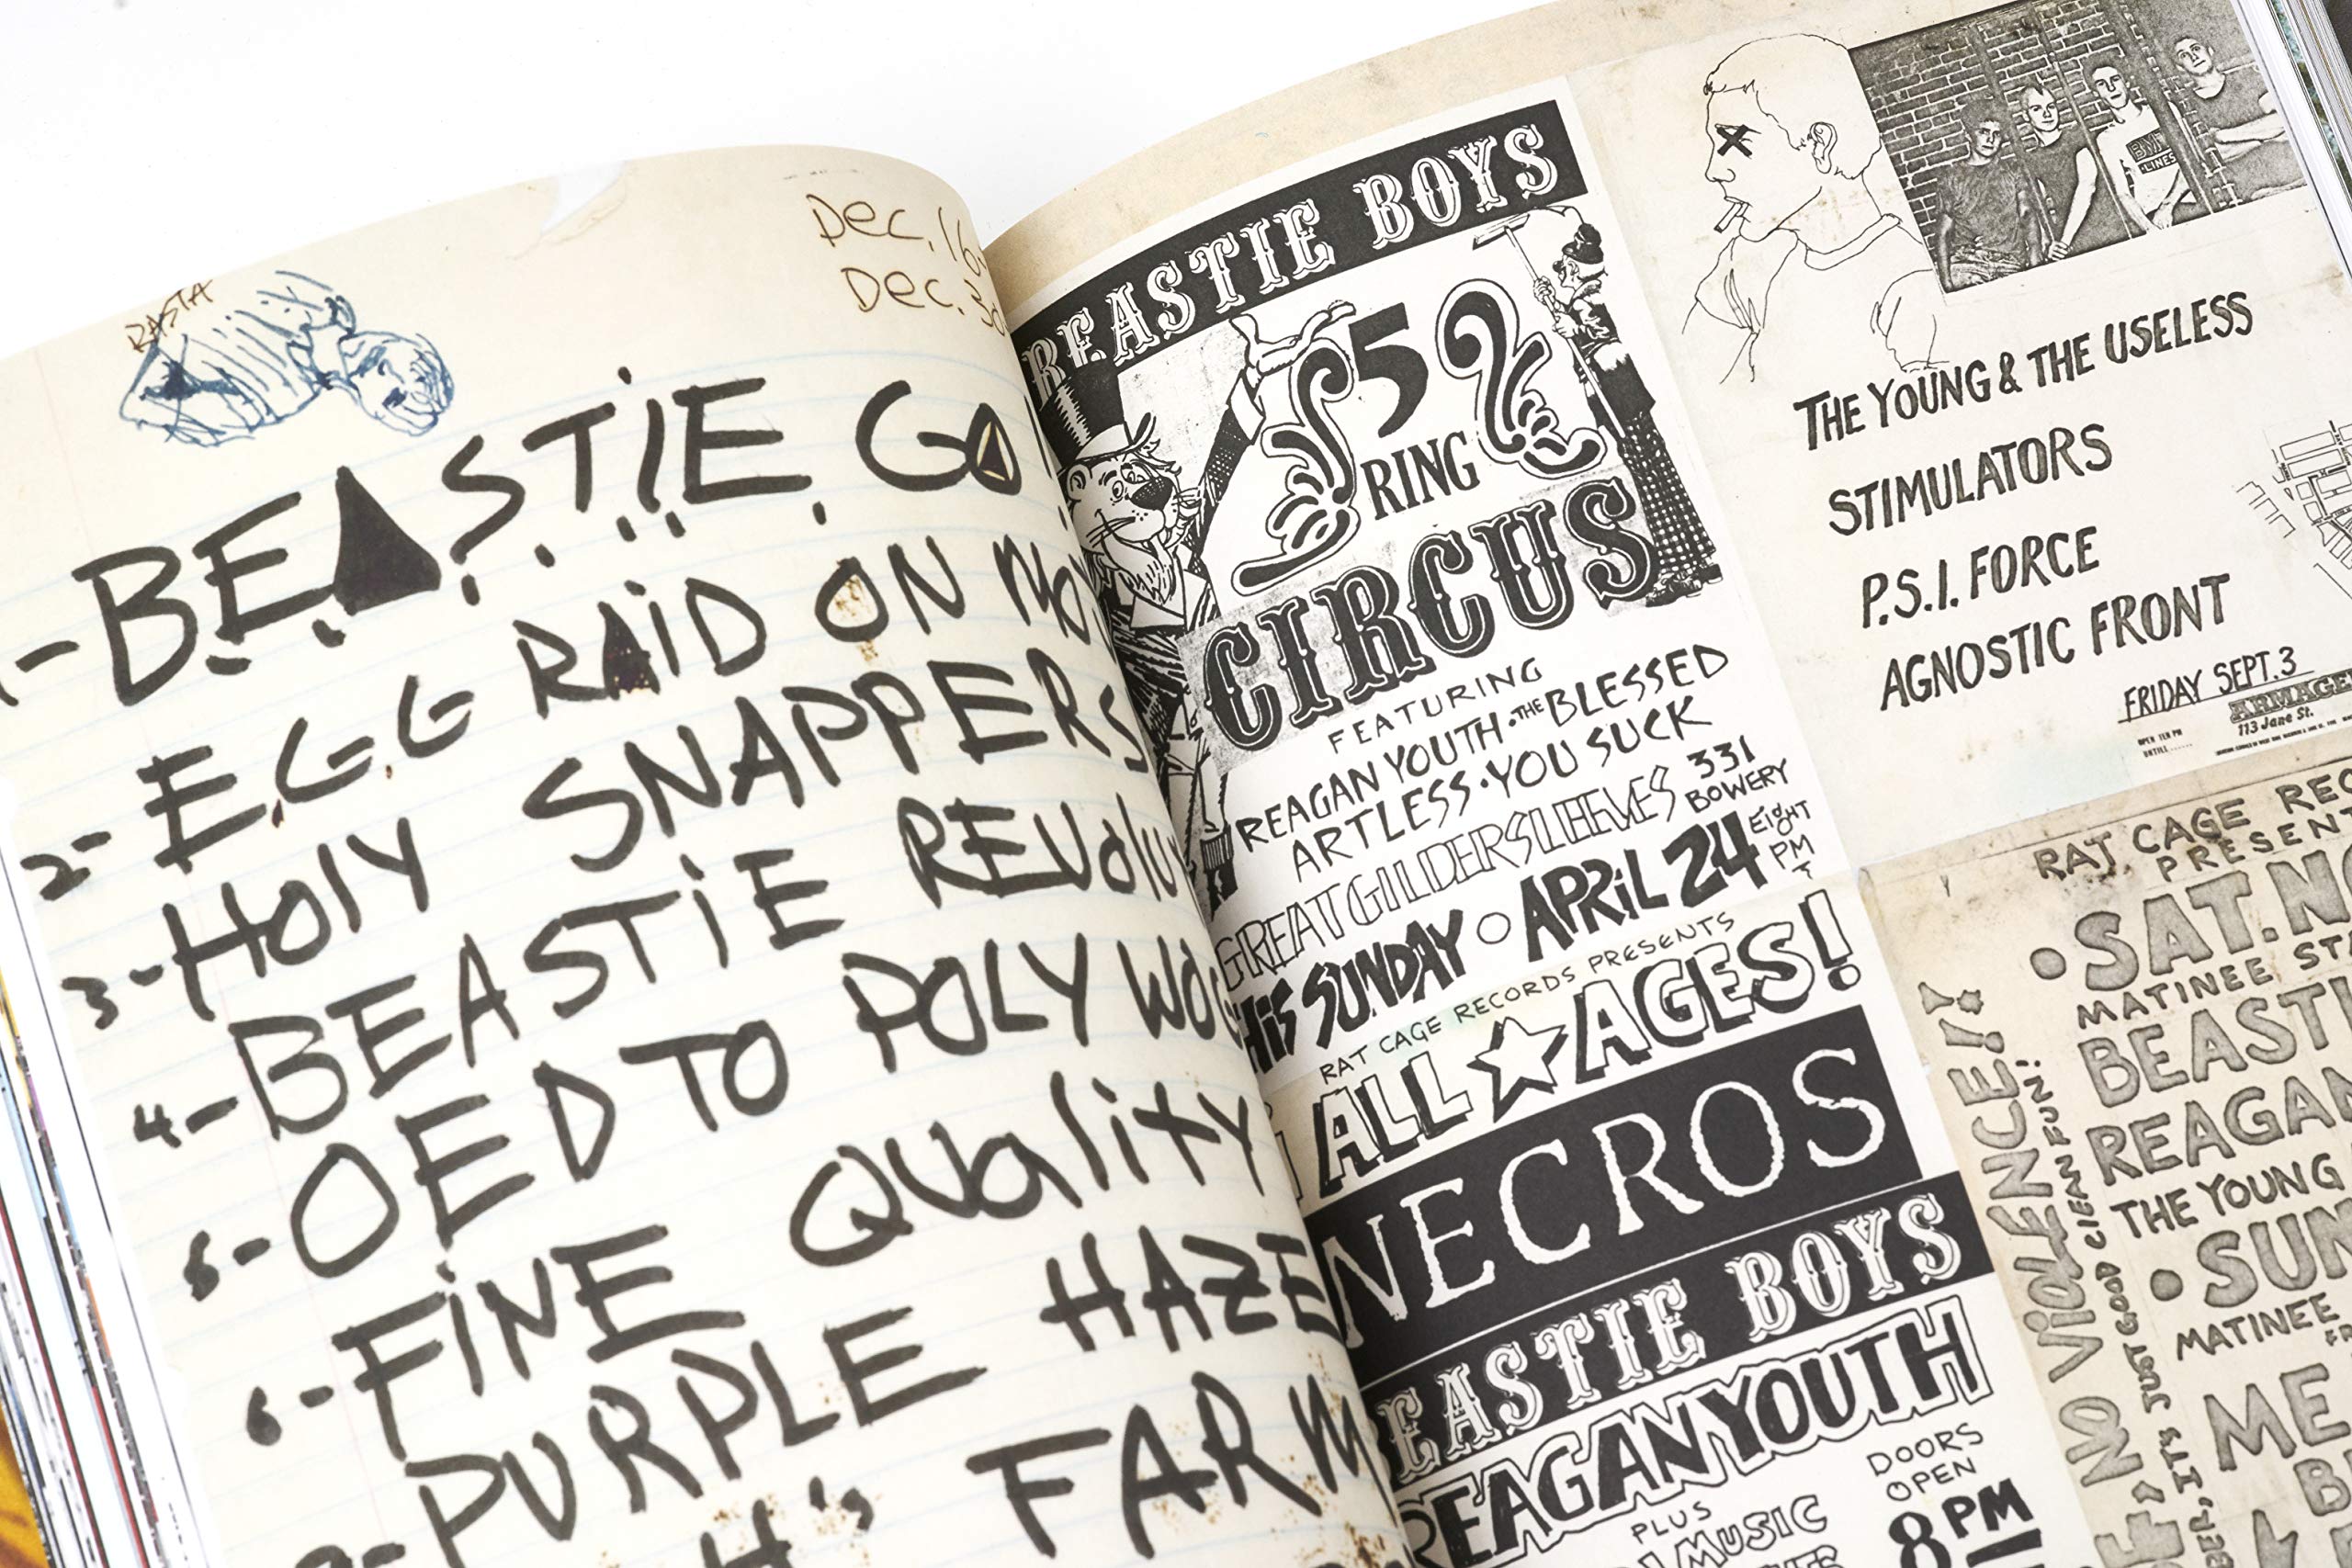 Dec. 16
Dec. 30
RASTA
1-BEASTIE GO
2- E.G.G RAID ON MO
3-HOLY SNAPPERS
4-BEASTIE REVOLU
5-OED TO POLYWO
6-FINE QUALITY
PURPLE HAZE
H's FARM
BEASTIE BOYS
5
RING
CIRCUS
FEATURING
REAGAN YOUTH • THE BLESSED
ARTLESS • YOU SUCK
GREAT GILDERSLEEVES 331 BOWERY
THIS SUNDAY • APRIL 24 EIGHT PM
RAT CAGE RECORDS PRESENTS
ALL AGES!
NECROS
BEASTIE BOYS
REAGAN YOUTH
PLUS
MUSIC
DOORS
OPEN
8 PM
BMT
LINES
THE YOUNG & THE USELESS
STIMULATORS
P.S.I. FORCE
AGNOSTIC FRONT
FRIDAY SEPT. 3
ARMAGE
113 Jane St.
OPEN TEN PM
UNTILL......
RAT CAGE REC
PRESEN
•SAT. NO
MATINEE STA
BEASTI
REAGAN
THE YOUNG
•SUN
MATINEE
ME
B
NO VIOLENCE!!
IT'S JUST GOOD CLEAN FUN!